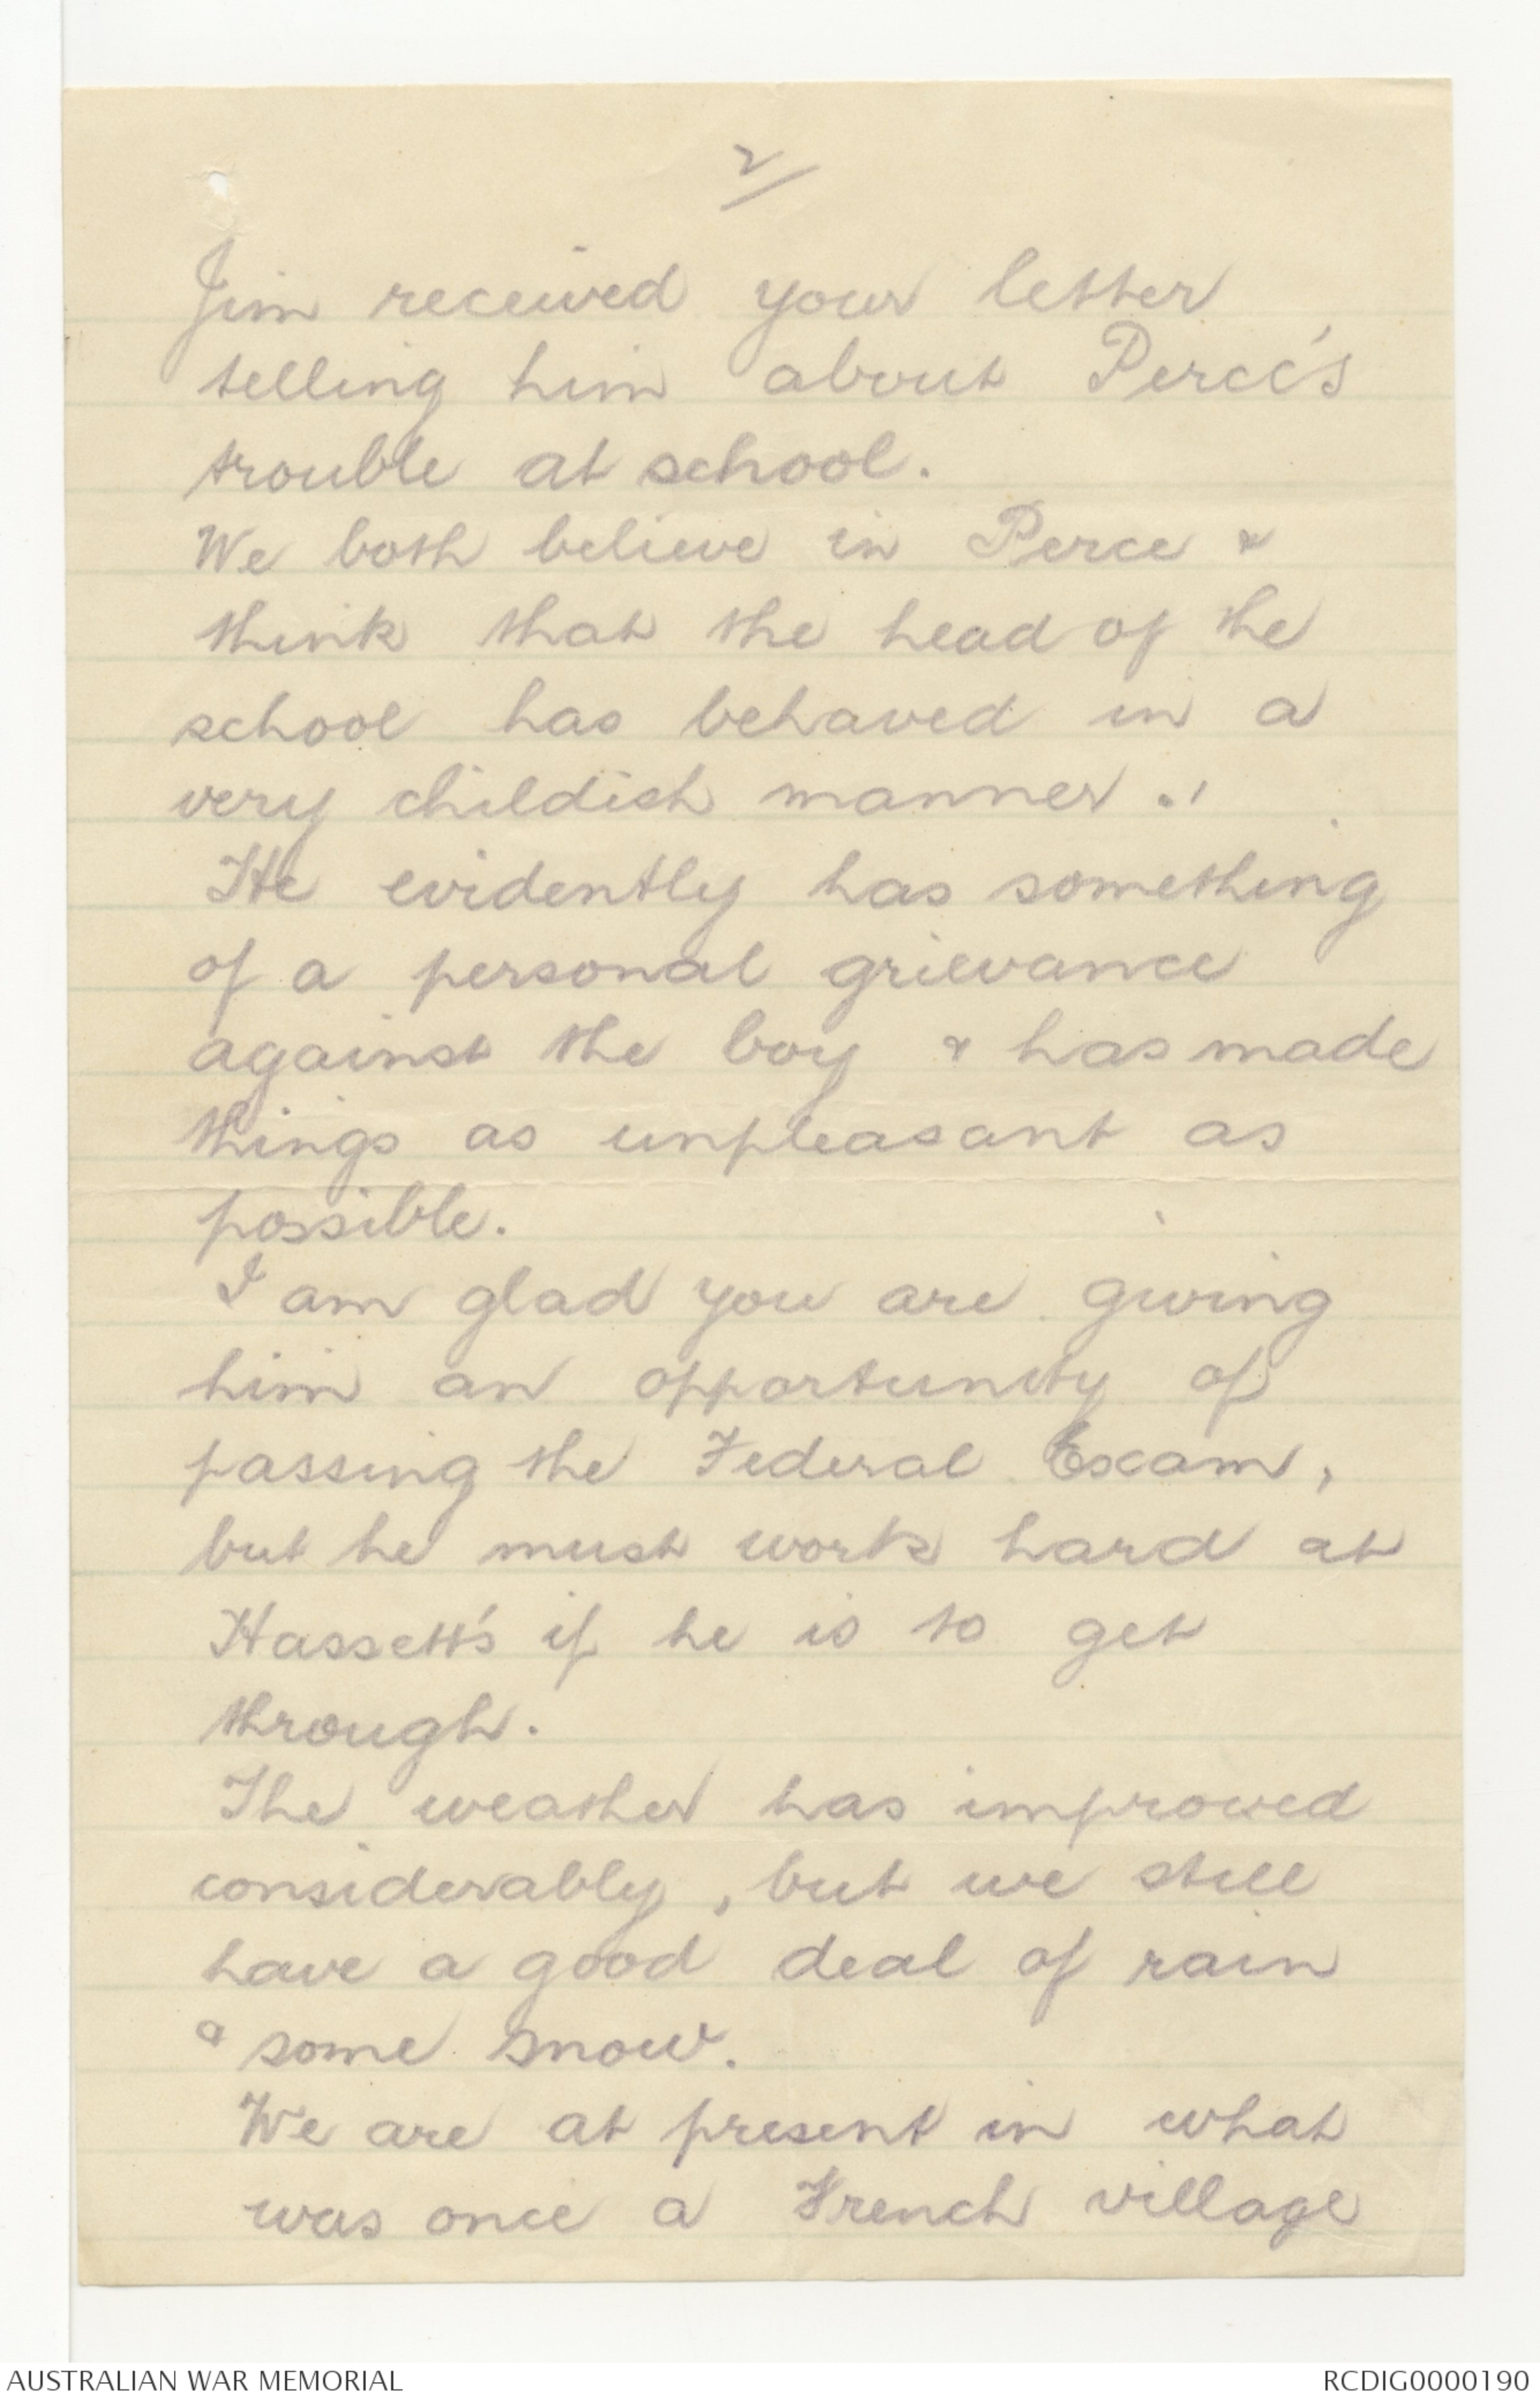 2/
Jim received your letter
telling him about Perce's
trouble at school.
We both believe in Perce &
think that the head of the
school has behaved in a
very childish manner.
He evidently has something
of a personal grievance
against the boy & has made
things as unpleasant as
possible.
I am glad you are giving
him an opportunity of
passing the Federal Exam,
but he must work hard at
Hassett's if he is to get
through.
The weather has improved
considerably, but we still
have a good deal of rain
& some snow.
We are at present in what
was once a French village
AUSTRALIAN WAR MEMORIAL
RCDIG0000190